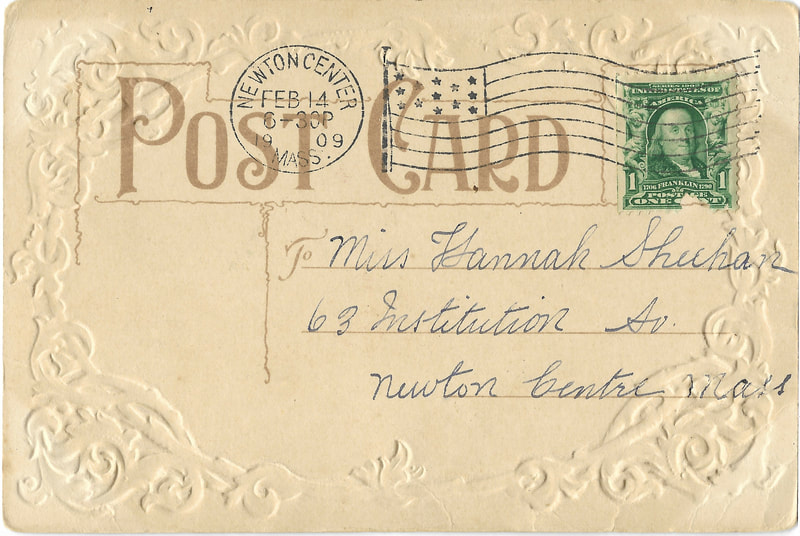 POST CARD
NEWTON CENTER
FEB 14
6-30P
19 09
MASS.
SERIES 1902
UNITED STATES OF
AMERICA
1 1706 FRANKLIN 1790 1
POSTAGE
ONE CENT
To Miss Hannah Sheehan
63 Institution Av.
Newton Centre Mass